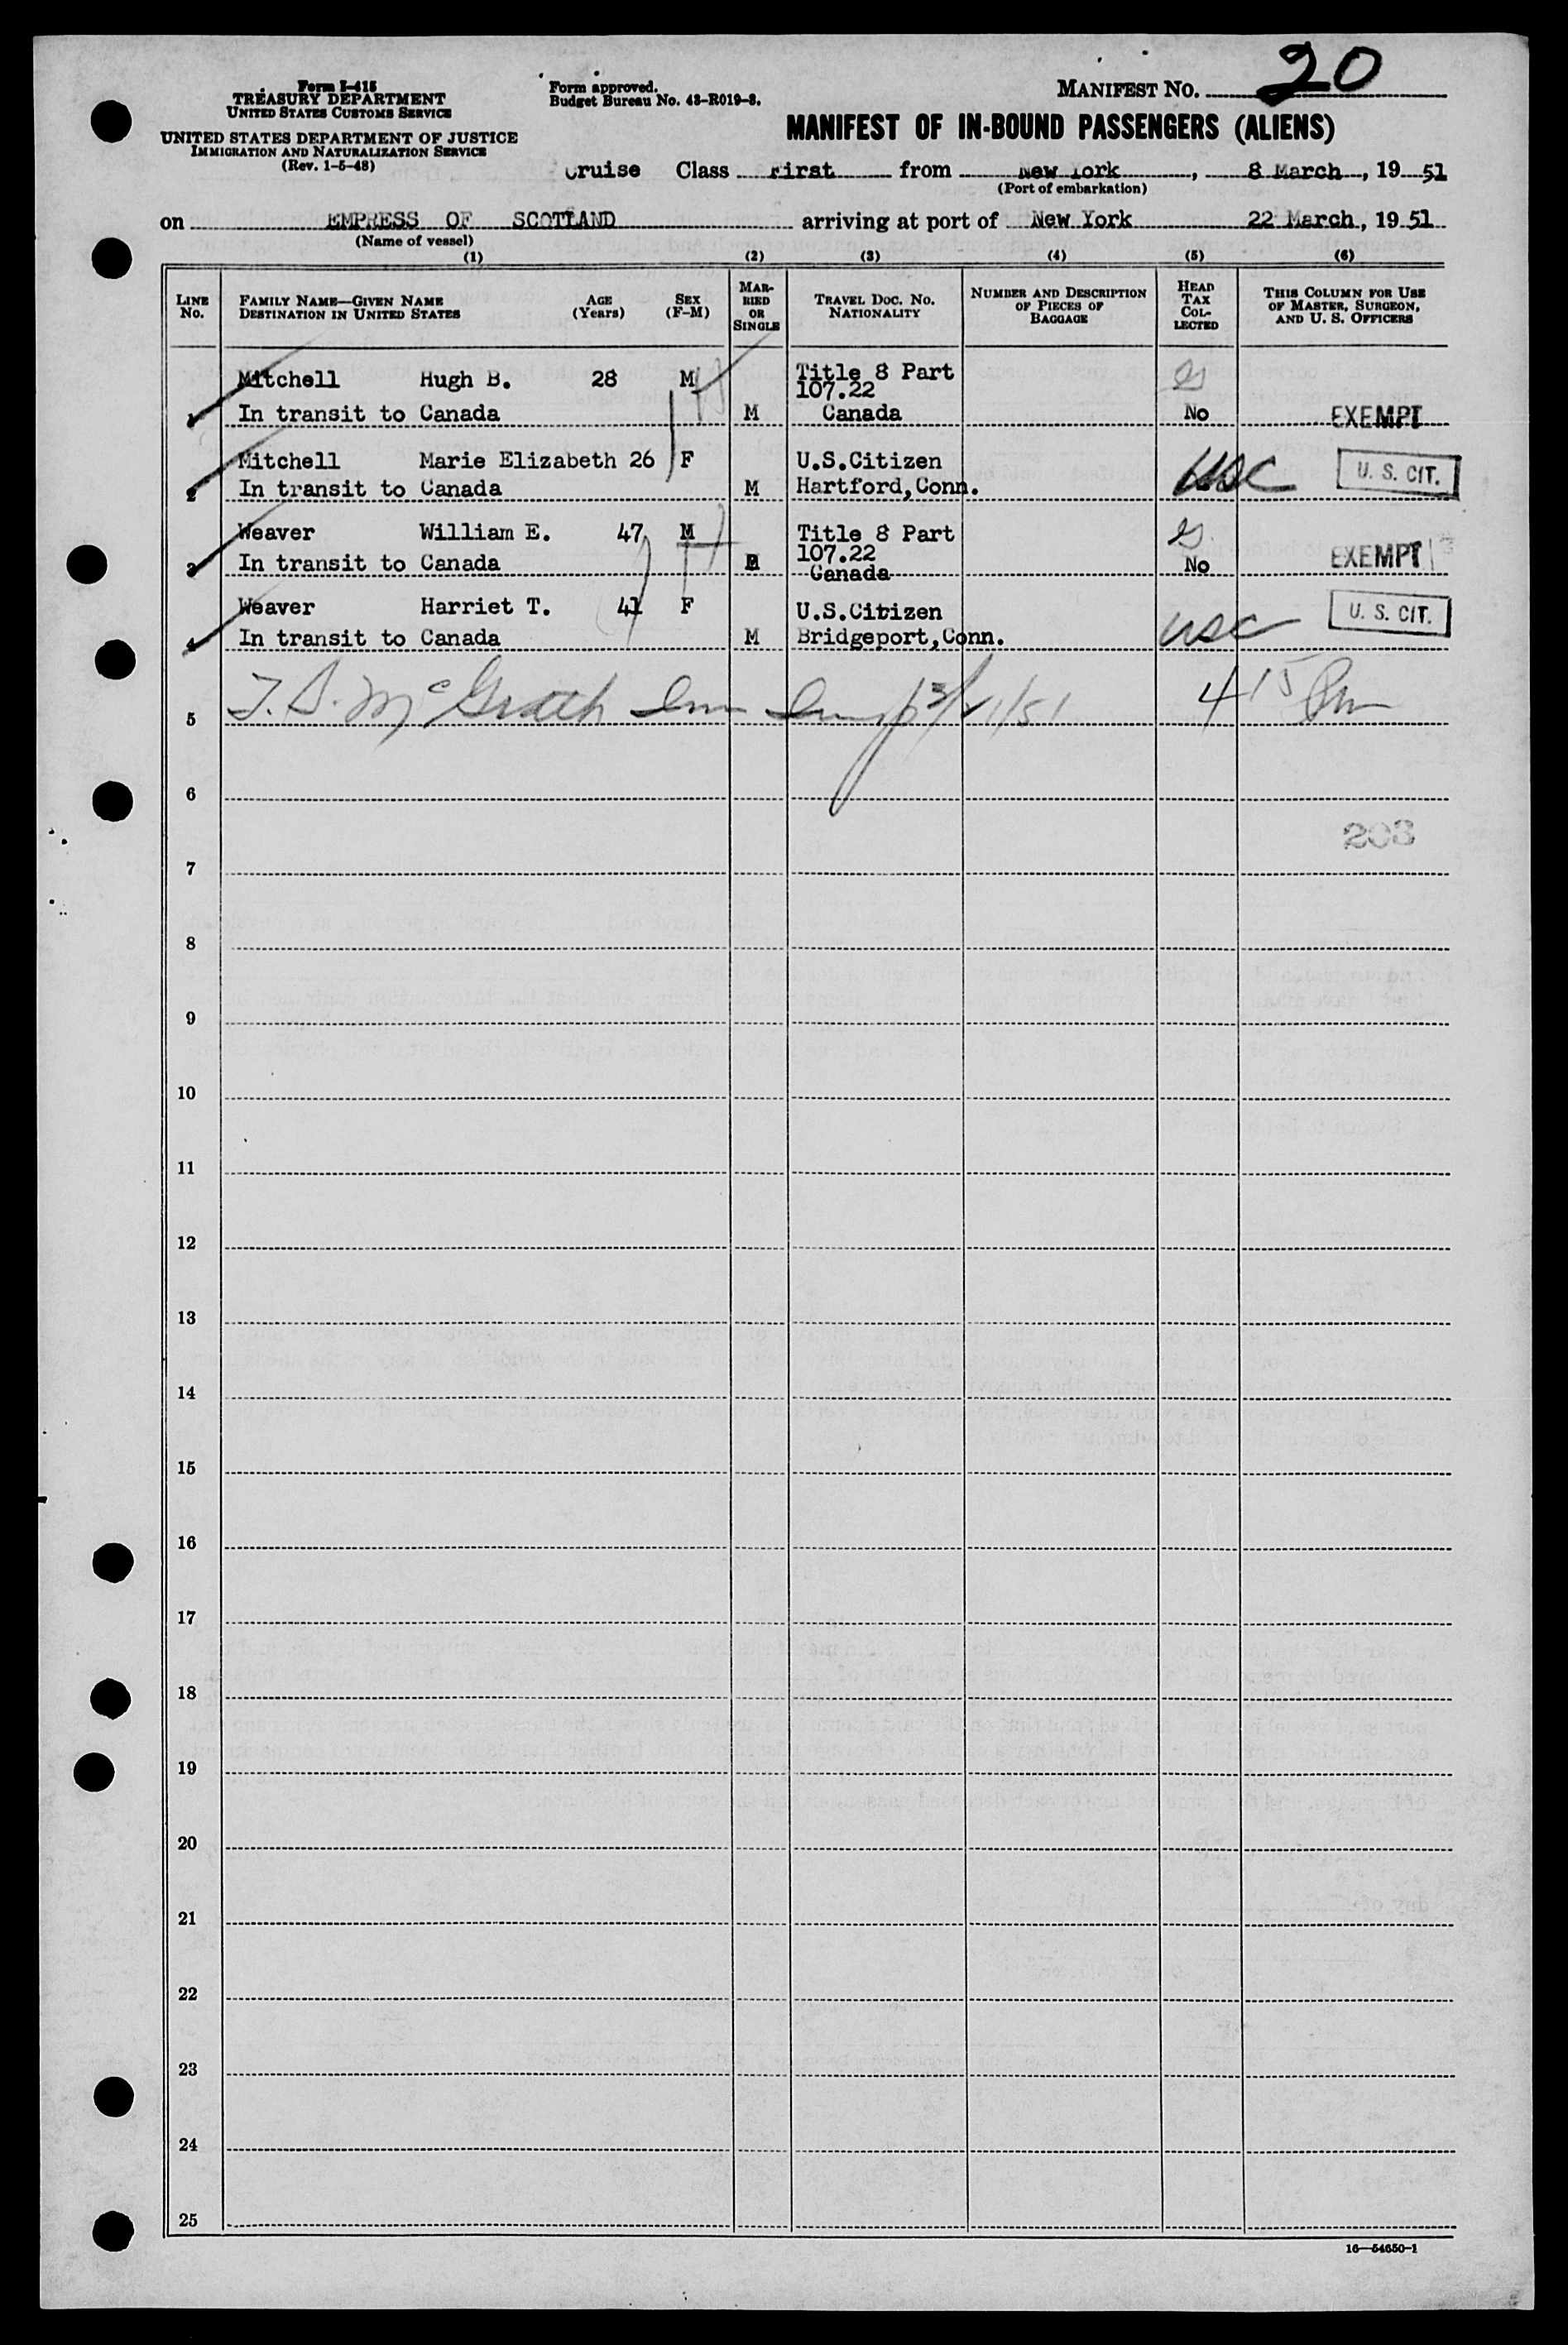 Form I-415
TREASURY DEPARTMENT
UNITED STATES CUSTOMS SERVICE
UNITED STATES DEPARTMENT OF JUSTICE
IMMIGRATION AND NATURALIZATION SERVICE
(Rev. 1-5-48)
Form approved.
Budget Bureau No. 43-R019-3.
MANIFEST NO. 20
MANIFEST OF IN-BOUND PASSENGERS (ALIENS)
Cruise Class First from New York, 8 March, 19 51
(Port of embarkation)
on EMPRESS OF SCOTLAND arriving at port of New York 22 March, 19 51
(Name of vessel)
(1) (2) (3) (4) (5) (6)
LINE NO. FAMILY NAME—GIVEN NAME DESTINATION IN UNITED STATES AGE (Years) SEX (F-M) MARRIED OR SINGLE TRAVEL DOC. NO. NATIONALITY NUMBER AND DESCRIPTION OF PIECES OF BAGGAGE HEAD TAX COLLECTED THIS COLUMN FOR USE OF MASTER, SURGEON, AND U. S. OFFICERS
Mitchell Hugh B. 28 M Title 8 Part
107.22
1 In transit to Canada M Canada No EXEMPT
Mitchell Marie Elizabeth 26 F U.S.Citizen usc U. S. CIT.
2 In transit to Canada M Hartford,Conn.
Weaver William E. 47 M Title 8 Part
107.22
3 In transit to Canada Canada No EXEMPT
Weaver Harriet T. 41 F U.S.Citizen usc U. S. CIT.
4 In transit to Canada M Bridgeport,Conn.
5 McGrath Imm Insp 4 15 Pm
6
203
7
8
9
10
11
12
13
14
15
16
17
18
19
20
21
22
23
24
25
16—54650-1